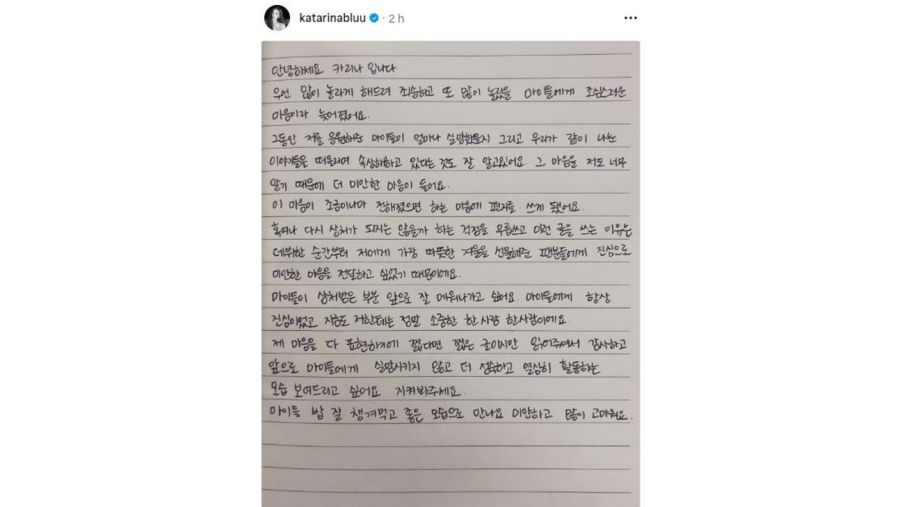 katarinabluu · 2 h
안녕하세요 카리나 입니다
우선 많이 놀라게 해드려 죄송하고 또 많이 놀랐을 마이들에게 조심스러운
마음이라 늦어졌어요.
그동안 저를 응원해준 마이들이 얼마나 실망했을지 그리고 우리가 같이 나눈
이야기들을 떠올리며 속상해하고 있다는 것도 잘 알고있어요 그 마음을 저도 너무
알기 때문에 더 미안한 마음이 들어요.
이 마음이 조금이나마 전해졌으면 하는 마음에 편지를 쓰게 됐어요.
혹여나 다시 상처가 되지는 않을까 하는 걱정을 무릅쓰고 이런 글을 쓰는 이유는
데뷔한 순간부터 저에게 가장 따뜻한 겨울을 선물해준 팬분들에게 진심으로
미안한 마음을 전달하고 싶었기 때문이에요.
마이들이 상처받은 부분 앞으로 잘 메워나가고 싶어요 마이들에게 항상
진심이었고 지금도 저한테는 정말 소중한 한사람 한사람이에요.
제 마음을 다 표현하기에 짧다면 짧은 글이지만 읽어주셔서 감사하고
앞으로 마이들에게 실망시키지 않고 더 성숙하고 열심히 활동하는
모습 보여드리고 싶어요 지켜봐주세요.
마이들 밥 잘 챙겨먹고 좋은 모습으로 만나요 미안하고 많이 고마워요.